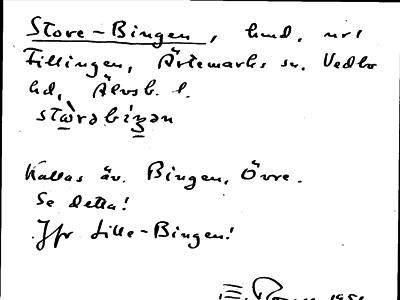 Store-Bingen, hmd. nr 1
Fillingen, Ärtemarks sn. Vedbo
hd, Älvsb. l.
stɷ̀rəbiŋən
Kallas äv. Bingen, Övre.
Se detta!
Jfr Lille-Bingen!